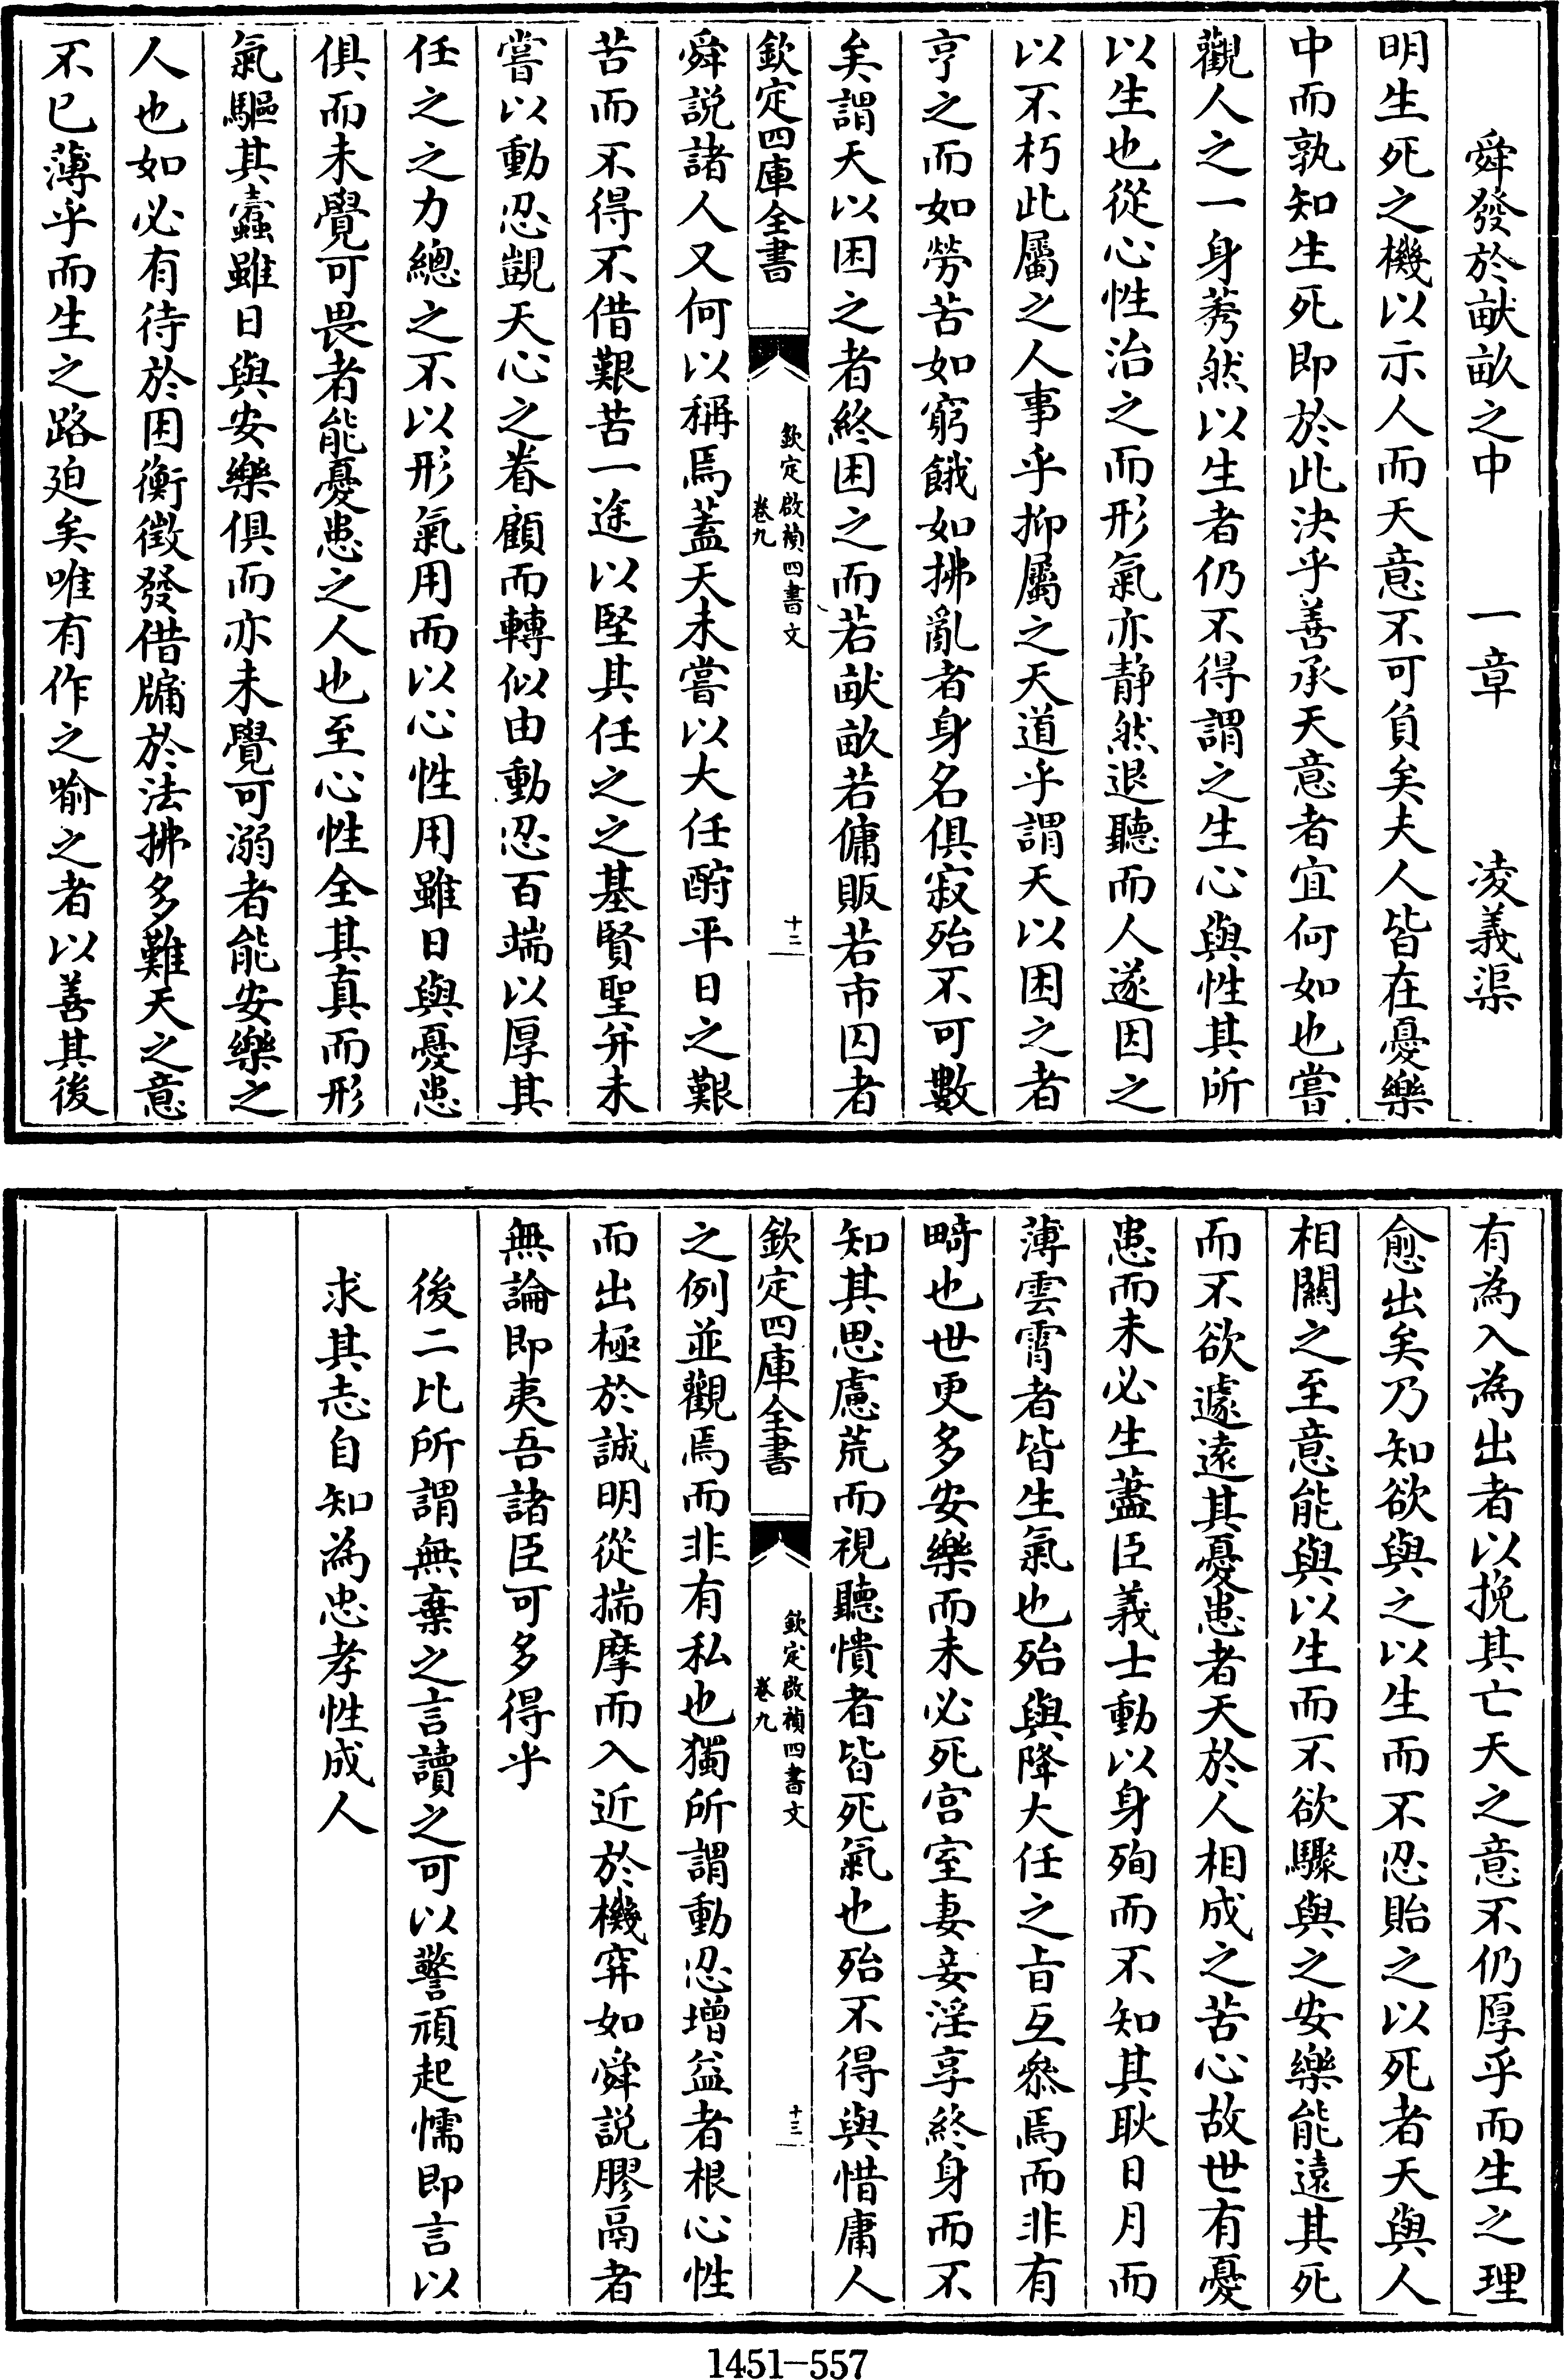 舜發於畎畝之中　一章　凌義渠
明生死之機以示人而天意不可負矣夫人皆在憂樂
中而孰知生死即於此決乎善承天意者宜何如也嘗
觀人之一身莠然以生者仍不得謂之生心與性其所
以生也從心性治之而形氣亦靜然退聽而人遂因之
以不朽此屬之人事乎抑屬之天道乎謂天以困之者
亨之而如勞苦如窮餓如拂亂者身名俱寂殆不可數
矣謂天以困之者終困之而若畎畝若傭販若市囚者
欽定四庫全書
欽定啟禎四書文
卷九
十二
舜説諸人又何以稱焉蓋天未嘗以大任酧平日之艱
苦而不得不借艱苦一途以堅其任之之基賢聖并未
嘗以動忍覬天心之眷顧而轉似由動忍百端以厚其
任之之力總之不以形氣用而以心性用雖日與憂患
俱而未覺可畏者能憂患之人也至心性全其真而形
氣驅其蠧雖日與安樂俱而亦未覺可溺者能安樂之
人也如必有待於困衡徵發借牗於法拂多難天之意
不已薄乎而生之路廹矣唯有作之喻之者以善其後
有為入為出者以挽其亡天之意不仍厚乎而生之理
愈出矣乃知欲與之以生而不忍貽之以死者天與人
相關之至意能與以生而不欲驟與之安樂能遠其死
而不欲遽遠其憂患者天於人相成之苦心故世有憂
患而未必生藎臣義士動以身殉而不知其耿日月而
薄雲霄者皆生氣也殆與降大任之㫖互叅焉而非有
畸也世更多安樂而未必死宫室妻妾淫享終身而不
知其思慮荒而視聽憒者皆死氣也殆不得與惜庸人
欽定四庫全書
欽定啟禎四書文
卷九
十三
之例並觀焉而非有私也獨所謂動忍增益者根心性
而出極於誠明從揣摩而入近於機穽如舜説膠鬲者
無論即夷吾諸臣可多得乎
後二比所謂無棄之言讀之可以警頑起懦即言以
求其志自知為忠孝性成人
1451—557